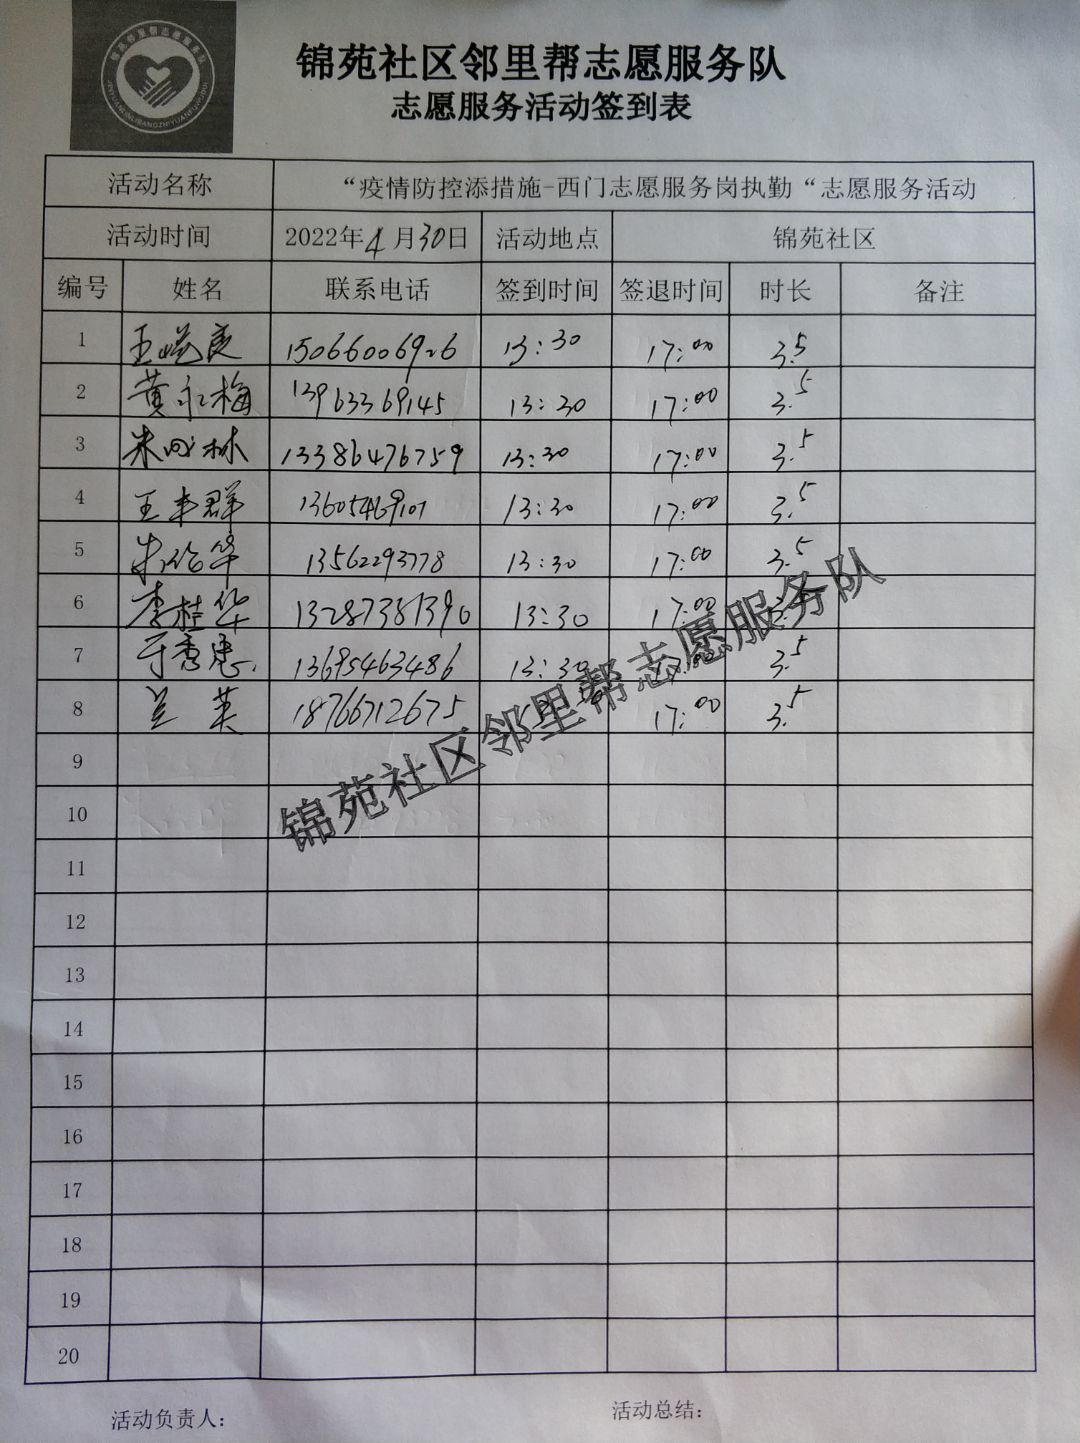 锦苑社区邻里帮志愿服务队
志愿服务活动签到表
活动名称 “疫情防控添措施-西门志愿服务岗执勤“志愿服务活动
活动时间 2022年4月30日 活动地点 锦苑社区
编号 姓名 联系电话 签到时间 签退时间 时长 备注
1 王 15066006926 13:30 17:00 3.5
2 黄永梅 13963369145 13:30 17:00 3.5
3 朱 林 13386476759 13:30 17:00 3.5
4 王丰群 13605469101 13:30 17:00 3.5
5 朱伦华 13562293778 13:30 17:00 3.5
6 李桂华 13287381390 13:30 17:00
7 于秀惠 13695463486 13:30 17:00 3.5
8 兰英 18766712675 17:00 3.5
9
10
11
12
13
14
15
16
17
18
19
20
锦苑社区邻里帮志愿服务队
活动负责人: 活动总结: